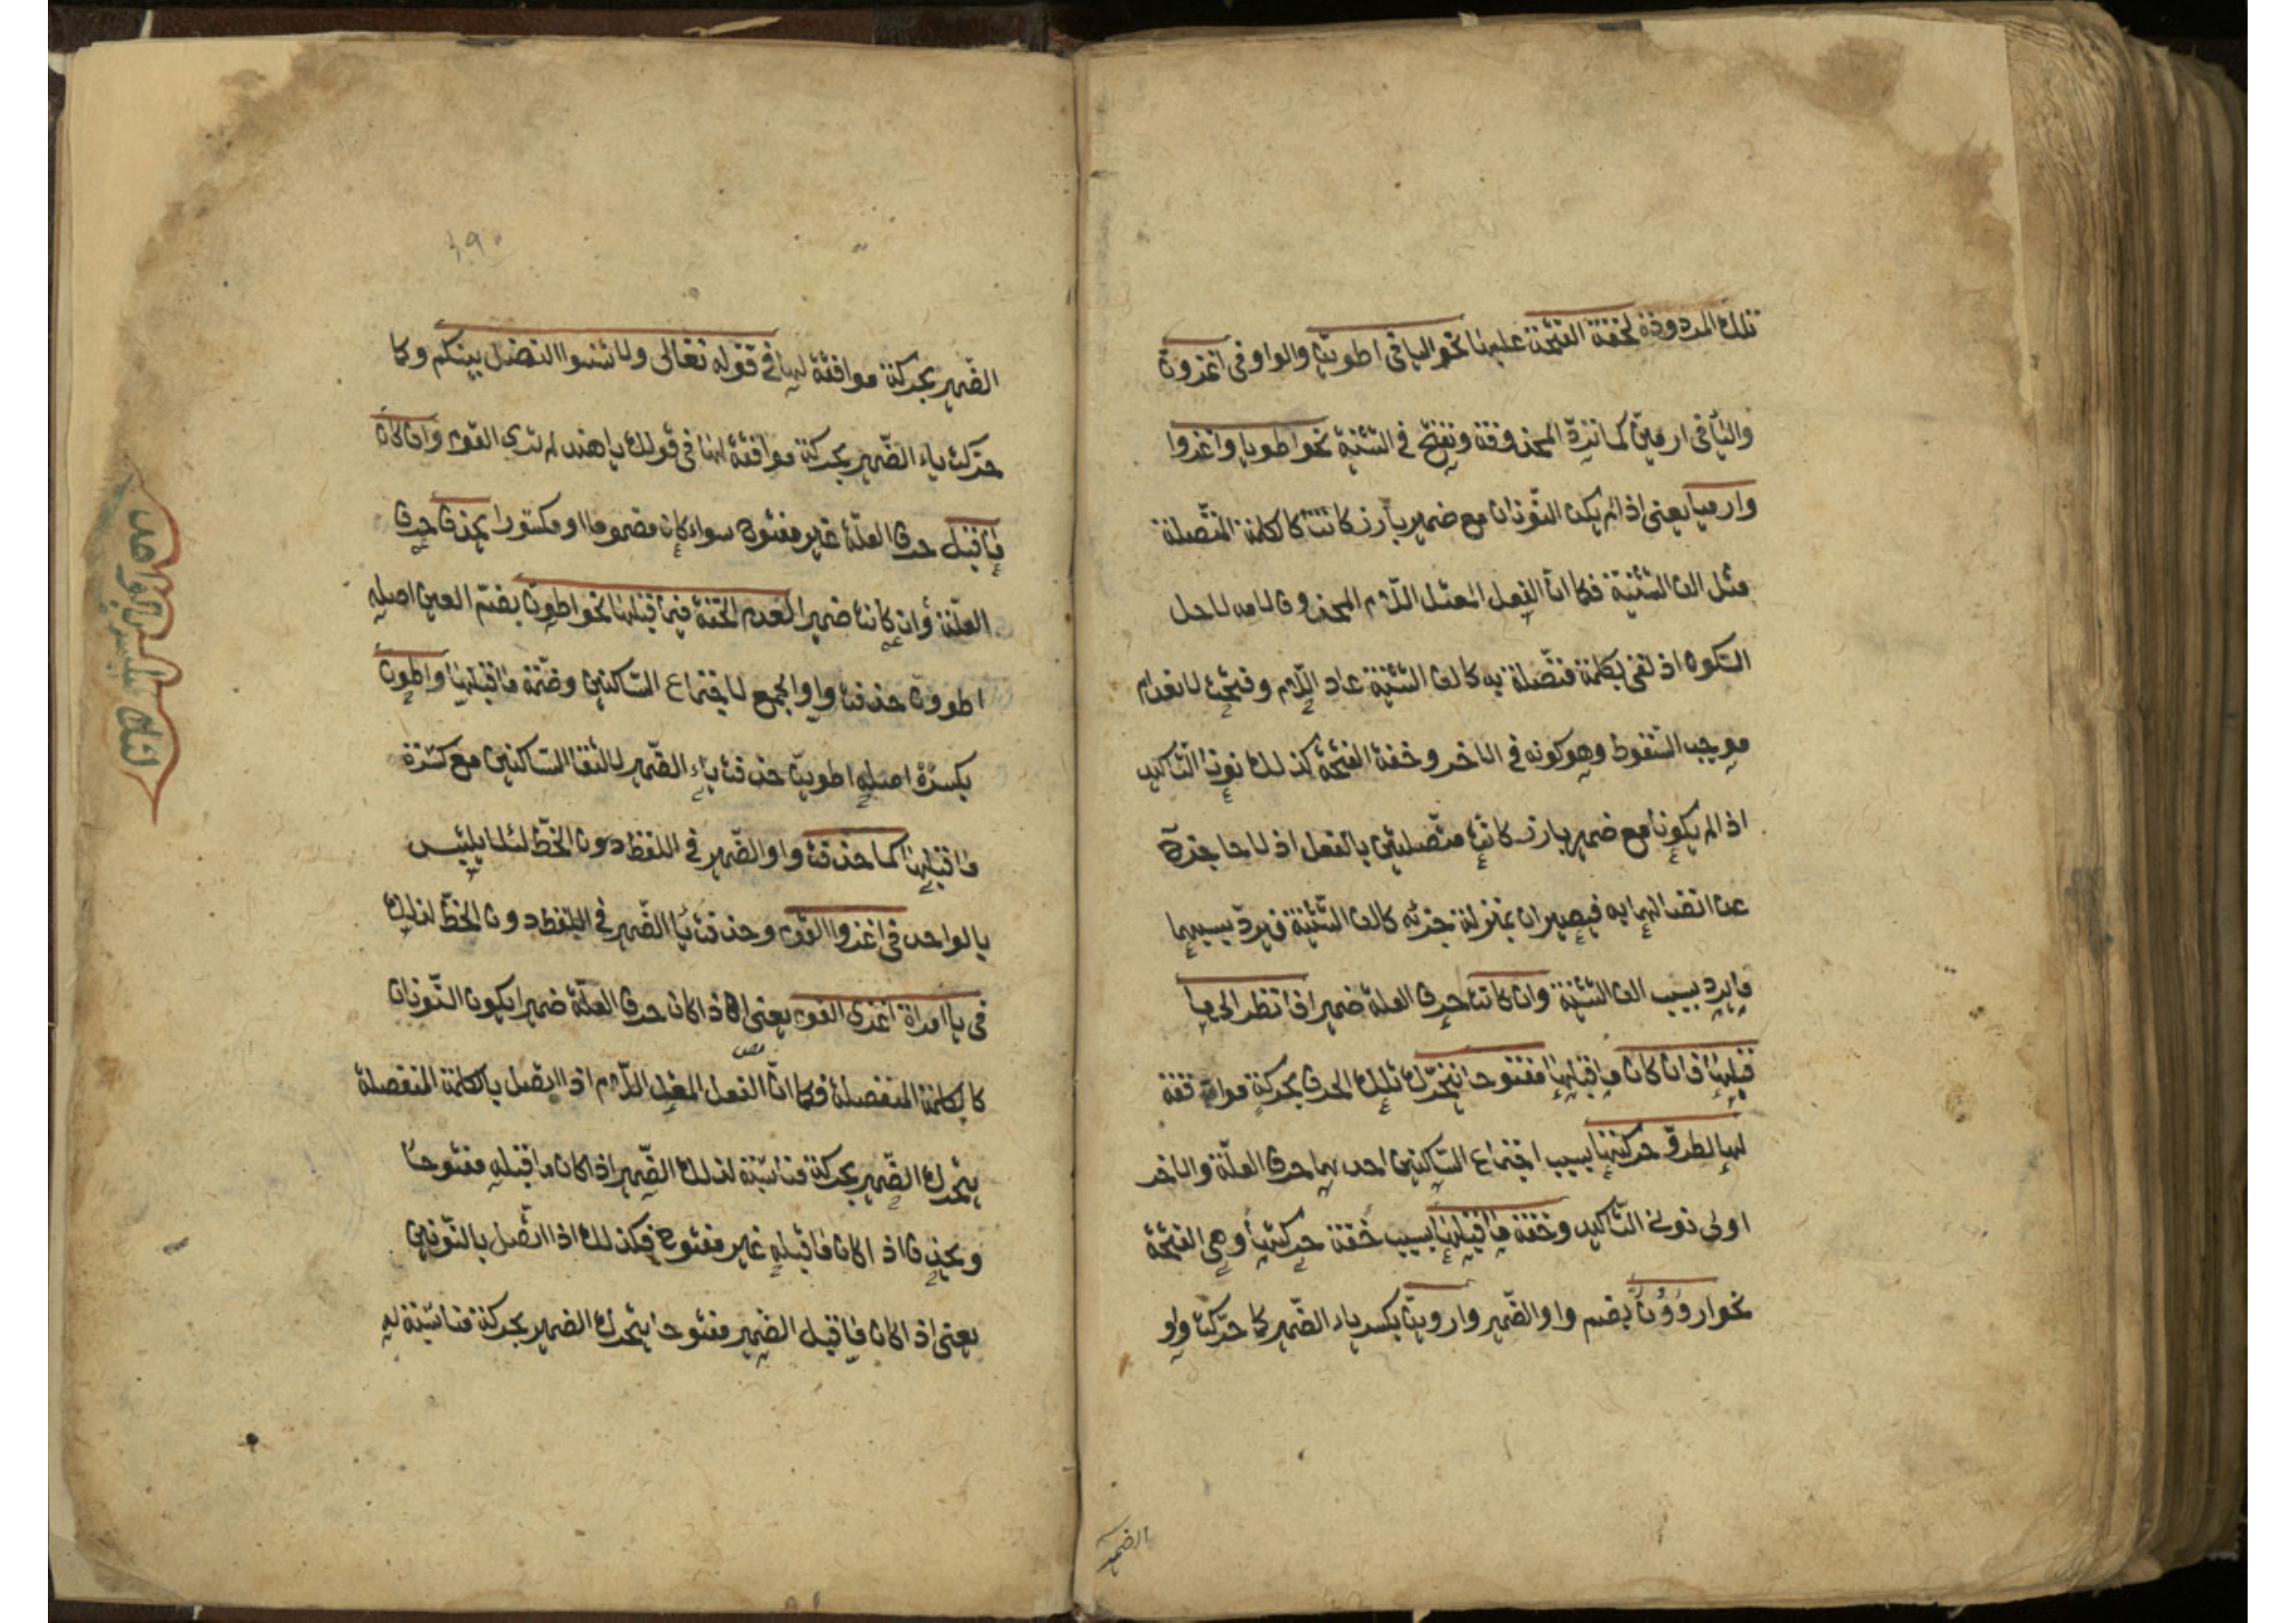 تلك المردودة لخفة الفتحة عليها نحو اليا في اطوينّ والواو في اغزونّ
والياء في ارمينّ كما تردّ المحذوفة وتفتح في التثنية نحو اطويا واغزوا
وارميا يعني اذا لم يكن النّونان مع ضمير بارز كانتا كالكلمة المتّصلة
مثل الف التثنية فكما انّ الفعل المعتل اللّام المحذوف لامه لاجل
السّكون اذ لقى بكلمة متّصلة به كالف التثنية عاد اللّام وفتحت لانعدام
موجب السّقوط وهو كونه في الاخر وخفة الفتحة كذلك نونا التّاكيد
اذا لم يكونا مع ضمير بارز كانتا متّصلتين بالفعل اذ لا حاجزة
عن اتصالهما به فيصيران بمنزلة جزئه كالف التّثنية فيردّ بسببهما
ما يرد بسبب الف التّثنية وان كانت حرف العلة ضميرا فانظر الى ما
قبلها فان كان ما قبلها مفتوحا تتحرّك تلك الحرف بحركة موافقة
لها لطروّ حركتها بسبب اجتماع السّاكنين احديهما حرف العلّة والاخر
اولى نوني التّاكيد وخفة ما قبلها بسبب خفة حركتها وهي الفتحة
نحو ارووُنّ بضم واو الضّمير واروينّ بكسر ياء الضّمير كما حرّكت واو
الضمير
الضّمير بحركة موافقة لها في قوله تعالى ولا تنسوا الفضل بينكم وكما
حرّكت ياء الضّمير بحركة موافقة لها في قولك يا هند لم تري القوم وان كان
ما قبل حرف العلّة غير مفتوح سواء كان مضموما او مكسورا يحذف حرف
العلّة وان كانت ضميرا لعدم الخفة فيما قبلها نحو اطونّ بضمّ العين اصله
اطوونّ حذفت واو الجمع لاجتماع السّاكنين وضمّة ما قبلها واطونّ
بكسرة اصله اطوينّ حذفت ياء الضّمير لالتقا السّاكنين مع كسرة
ما قبلها كما حذفت واو الضّمير في اللفظ دون الخطّ لئلا يلتبس
بالواحد في اغزوا القوم وحذفت يا الضّمير في اللفظ دون الخطّ لذلك
في يا امراة اغزى القوم يعني اذا كان حرف العلّة ضميرا يكون النّونان
كالكلمة المنفصلة فكما انّ الفعل المعتل اللّام اذا اتصل بالكلمة المنفصلة
يتحرك الضّمير بحركة مناسبة لذلك الضّمير اذا كان ما قبله مفتوحا
ويحذف اذا كان ما قبله غير مفتوح فكذلك اذا اتّصل بالنّونين
يعني اذا كان ما قبل الضمير مفتوحا يتحرك الضمير بحركة مناسبة له